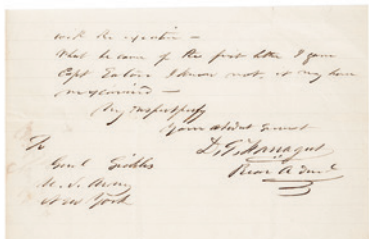 with the
What became of the first letter I gave
Capt I know not, it may have
Very respectfully
Your obedient servant
D. G. Farragut
Rear Adml
To
Genl Sickles
U. S. Army
New York